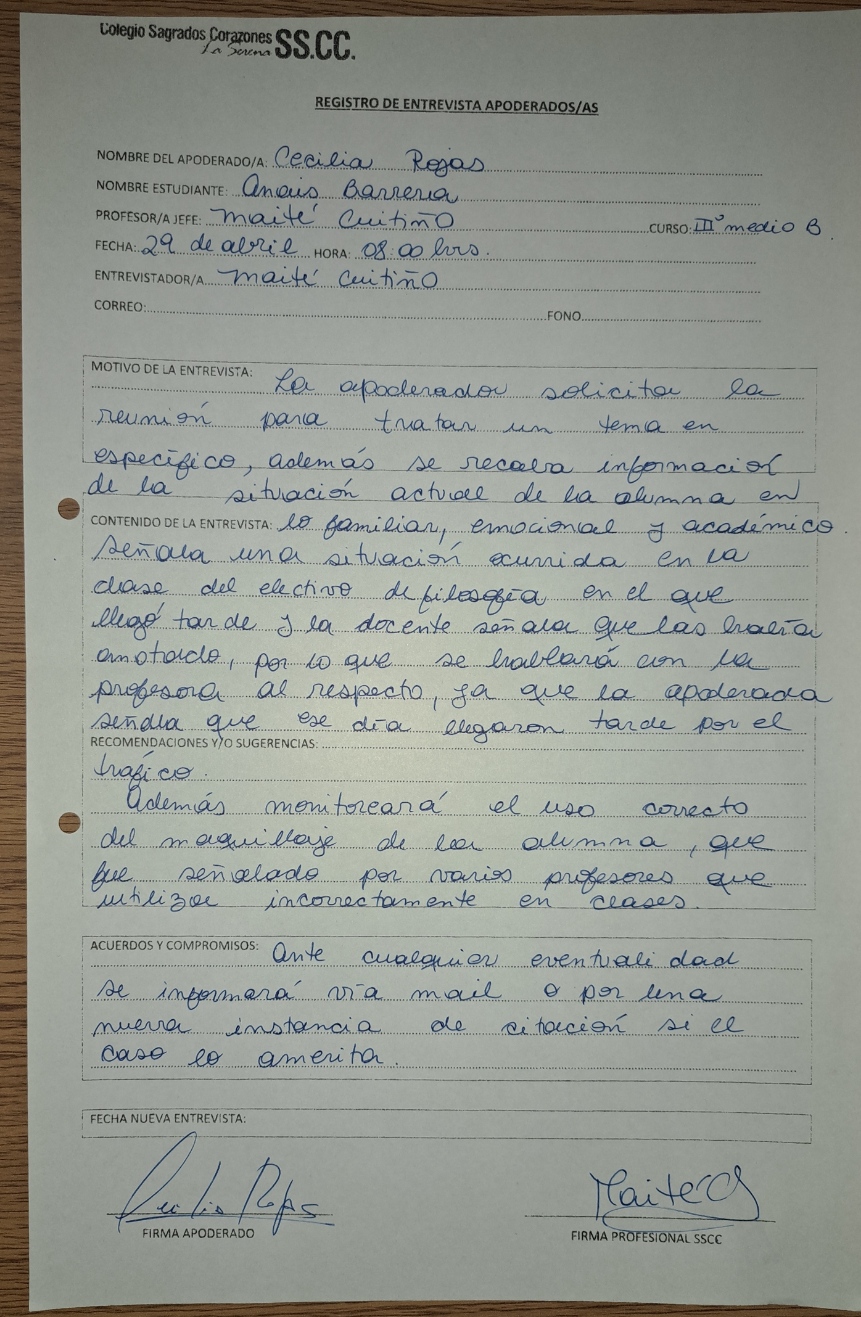 Colegio Sagrados Corazones
La Serena SS.CC.
REGISTRO DE ENTREVISTA APODERADOS/AS
NOMBRE DEL APODERADO/A: Cecilia Rojas
NOMBRE ESTUDIANTE: Anais Barrera
PROFESOR/A JEFE: Maité Cuitiño CURSO: III° medio B
FECHA: 29 de abril HORA: 08:00 hrs.
ENTREVISTADOR/A Maité Cuitiño
CORREO: FONO
MOTIVO DE LA ENTREVISTA: La apoderada solicita la
reunión para tratar un tema en
específico, además se recaba información
de la situación actual de la alumna en
CONTENIDO DE LA ENTREVISTA: lo familiar, emocional y académico.
Señala una situación ocurrida en la
clase del electivo de filosofía en el que
llegó tarde y la docente señala que las había
anotado, por lo que se hablará con la
profesora al respecto, ya que la apoderada
señala que ese día llegaron tarde por el
RECOMENDACIONES Y/O SUGERENCIAS:
tráfico.
Además monitoreará el uso correcto
del maquillaje de la alumna, que
fue señalado por varios profesores que
utiliza incorrectamente en clases.
ACUERDOS Y COMPROMISOS: Ante cualquier eventualidad
se informará vía mail o por una
nueva instancia de citación si el
caso lo amerita.
FECHA NUEVA ENTREVISTA:
Cecilia Rojas
Maite C
FIRMA APODERADO
FIRMA PROFESIONAL SSCC